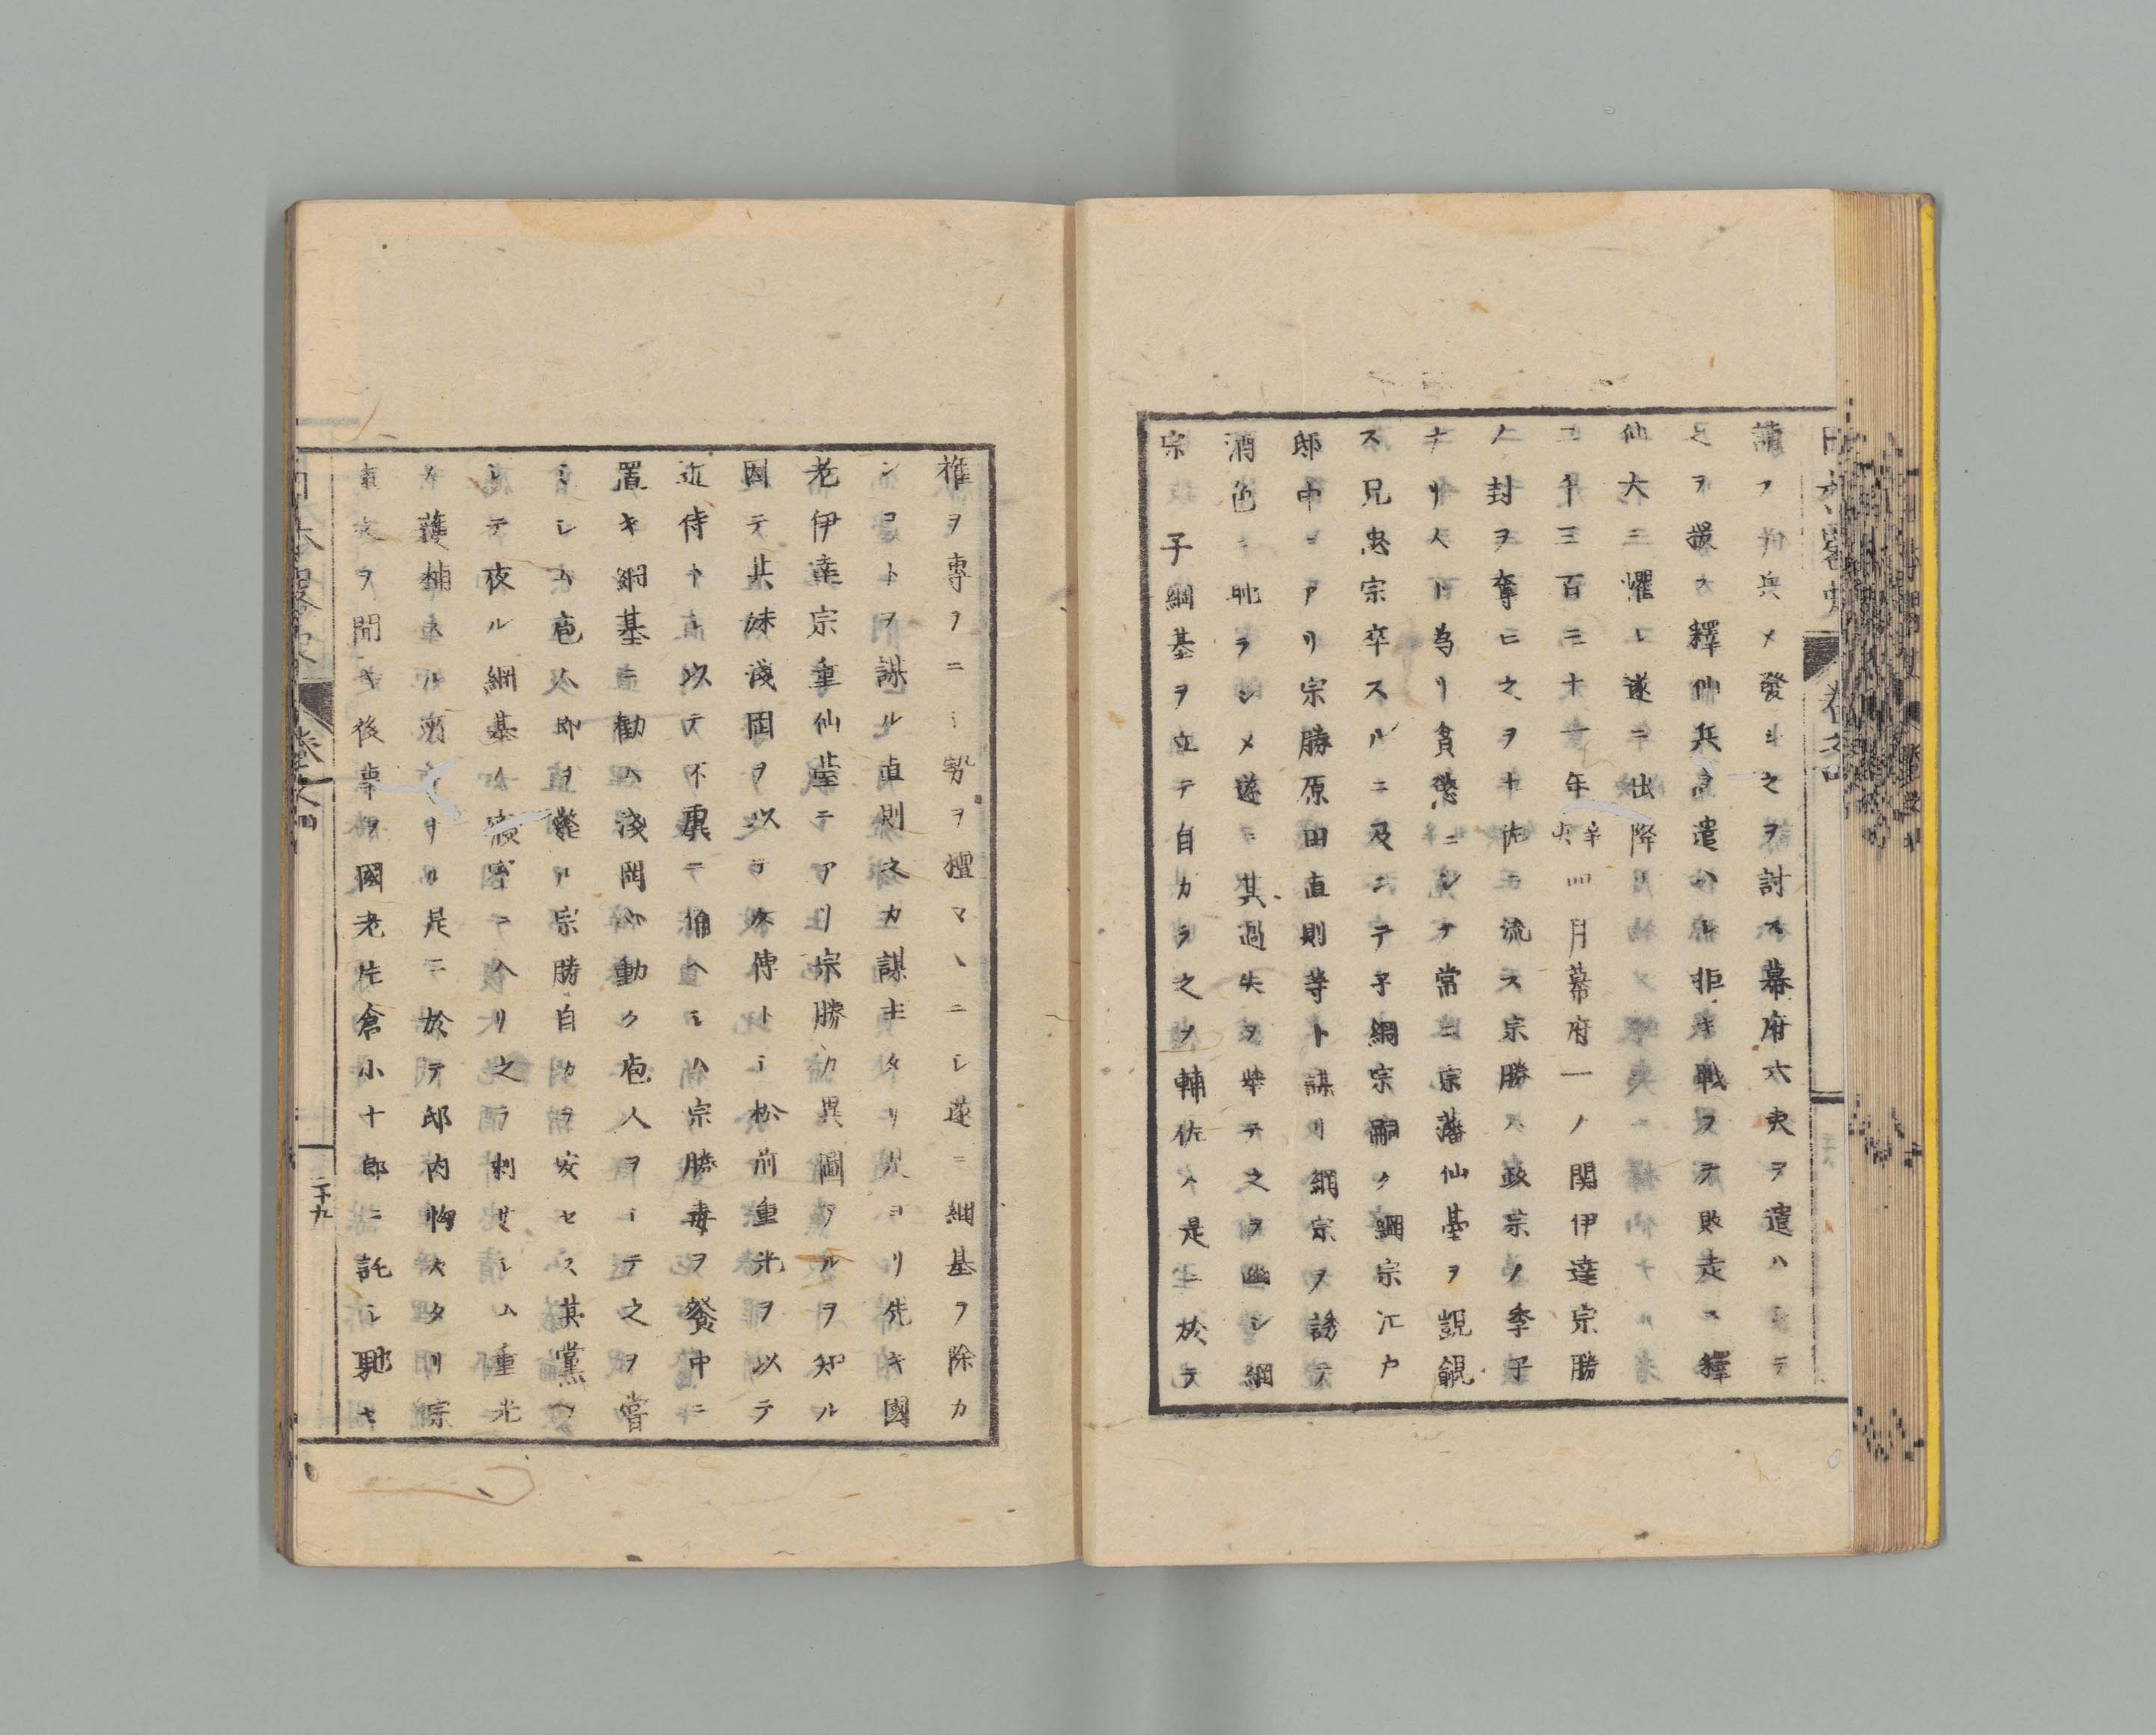 請フ兵ヲ發シ之ヲ討ス幕府大夫ヲ遣ハシテ
之ヲ援ク釋仙兵ヲ遣ハシ拒キ戰フテ敗走ス釋
仙大ニ懼レ遂ニ出降
二千三百三十一年辛亥四月幕府一ノ関伊達宗勝
ノ封ヲ奪ヒ之ヲ土佐ニ流ス宗勝ハ政宗ノ季子
ナリ人ト為リ貪懲ニシテ常ニ宗藩仙䑓ヲ覬覦
ス兄忠宗卒スルニ及ニテ子綱宗嗣ク綱宗江戸
邸中ニアリ宗勝原田直則等ト謀リ綱宗ヲ誘テ
酒色ニ耽ラシメ遂ニ其過失ヲ挙テ之ヲ幽シ綱
宗ノ子綱基ヲ立テ自カラ之ヲ輔佐ス是ニ於テ
権ヲ專ラニシ勢ヲ擅マヽニシ遂ニ綱基ヲ除カ
ンコトヲ謀ル直則之カ謀主タリ是ヨリ先キ國
老伊達宗重仙䑓ニアリ宗勝カ異圖アルヲ知ル
因テ其妹淺岡ヲ以テ久傳トシ松前重光ヲ以テ
近侍ト以テ不虞ニ備ヘシム宗勝毒ヲ餐中ニ
置キ綱基ニ勸ム淺岡心動ク庖人ヲシテ之ヲ甞
シム庖人即ヲ斃ル宗勝自カラ安セス其黨ヲ
シテ夜ル綱基ノ寢室ニ入リ之ヲ刺サシム重光
獲捕ス是ニ於テ邸内恟々タリ宗
重之ヲ聞キ後事ヲ國老片倉小十郎ニ託シ馳セ
二十九